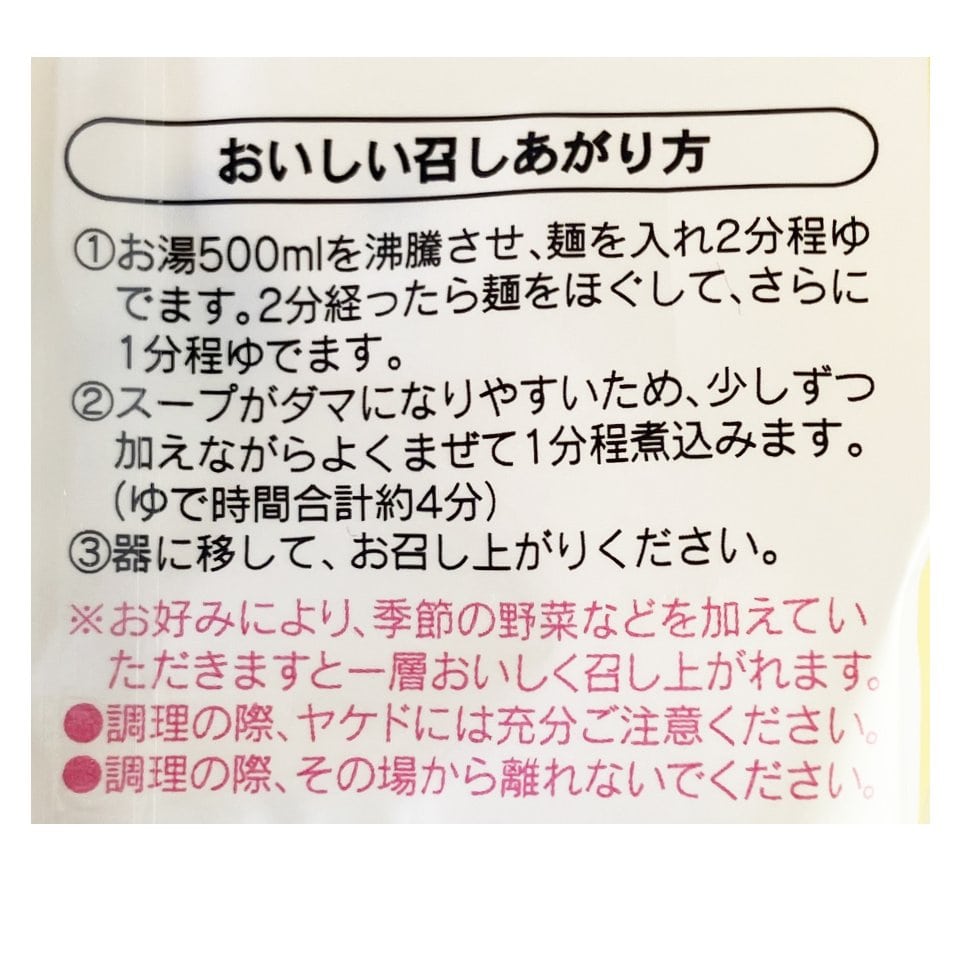 おいしい召しあがり方
①お湯500mlを沸騰させ、麺を入れ2分程ゆ
でます。2分経ったら麺をほぐして、さらに
1分程ゆでます。
②スープがダマになりやすいため、少しずつ
加えながらよくまぜて1分程煮込みます。
(ゆで時間合計約4分)
③器に移して、お召し上がりください。
※お好みにより、季節の野菜などを加えてい
ただきますと一層おいしく召し上がれます。
●調理の際、ヤケドには充分ご注意ください。
●調理の際、その場から離れないでください。